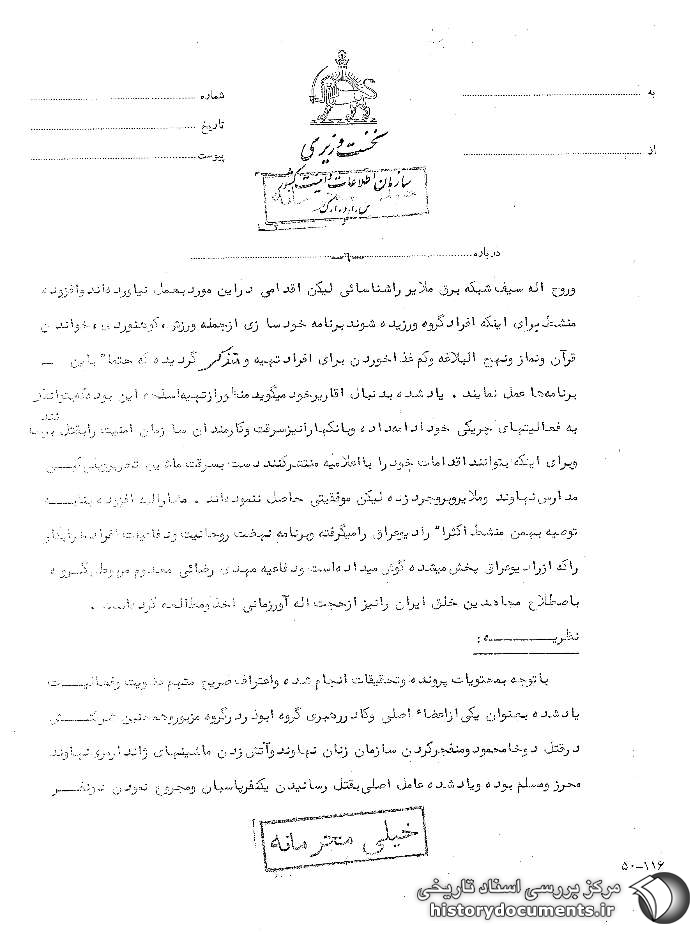 به
شماره
تاریخ
از
پیوست
نخست وزیری
سازمان اطلاعات و امنیت کشور
س.ا.و.ا.ک
درباره
وروح اله سیف شبکه برق ملایر راشناسائی لیکن اقدامی دراین موردبعمل نیاورده‌اند وافزوده
منشط برای اینکه افراد گروه ورزیده شوند برنامه خودسازی ازجمله ورزش ، کوهنوردی ، خواندن
قرآن ونماز ونهج البلاغه وکم غذاخوردن برای افراد تهیه و متذکر گردیده که حتما" باین
برنامه‌ها عمل نمایند . یادشده بدنبال اقاریرخود میگوید منظور ازتهیه اسلحه این بوده که بتوانند
به فعالیتهای چریکی خود ادامه داده وبانکهارا نیز سرقت وکارمندان سازمان امنیت رابقتل
وبرای اینکه بتوانند اقدامات خود را بااعلامیه منتشرکنند دست بسرقت ماشین
مدارس نهاوند وملایر وبروجرد زده لیکن موفقیتی حاصل ننموده‌اند . مشارالیه افزوده بنا به
توصیه بهمن منشط اکثرا" رادیوعراق رامیگرفته وبرنامه نهضت روحانیت ودفاعیات افراد
راکه ازرادیوعراق پخش میشده گوش میداده است ودفاعیه مهدی رضائی معدوم مربوط به گروه
باصطلاح مجاهدین خلق ایران رانیز ازحجت اله آورزمانی اخذ ومطالعه کرده است .
نظریه :
باتوجه بمحتویات پرونده وتحقیقات انجام شده واعتراف صریح متهم عضویت وفعالیت
یادشده بعنوان یکی ازاعضاء اصلی وکادر رهبری گروه ابوذر درگروه مزبور وهمچنین شرکتش
درقتل دوخامحمود ومنفجرکردن سازمان زنان نهاوند وآتش زدن ماشینهای ژاندارمری نهاوند
محرز ومسلم بوده ویادشده عامل اصلی بقتل رسانیدن یکنفر پاسبان ومجروح نمودن دونفر
خیلی محرمانه
۵۰-۱۱۶
مرکز بررسی اسناد تاریخی
historydocuments.ir